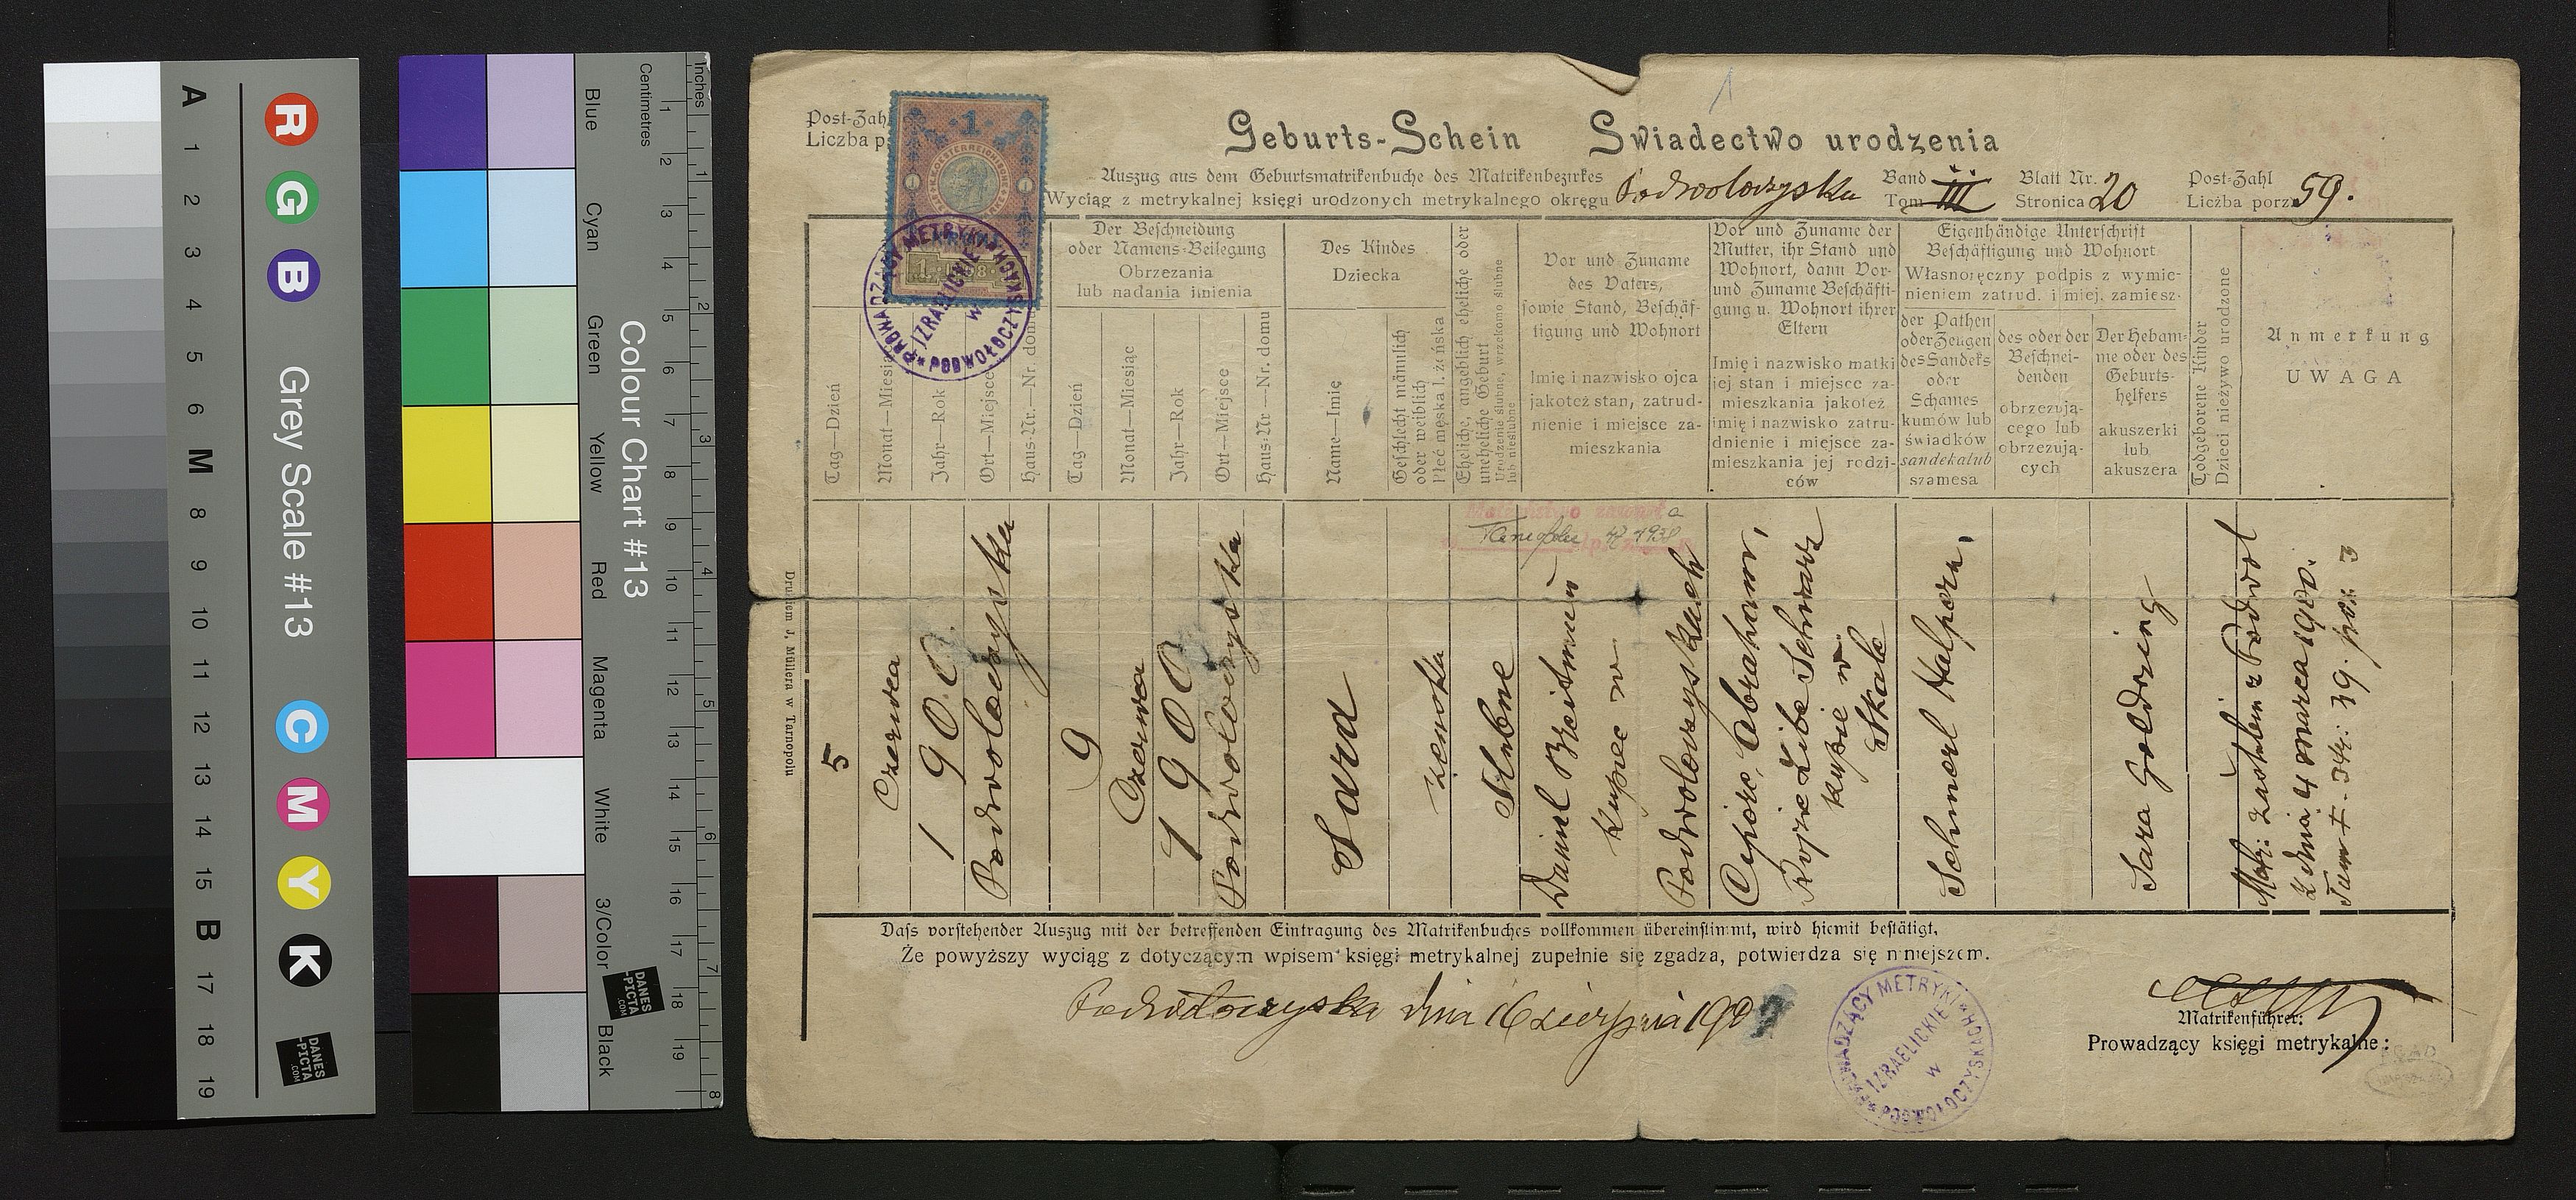 Grey Scale #13
R
G
B
C
M
Y
K
A 1 2 3 4 5 6 M 8 9 10 11 12 13 14 15 B 17 18 19
DANES
-PICTA
.COM
Colour Chart #13
Blue
Cyan
Green
Yellow
Red
Magenta
White
3/Color
Black
Centimetres
Inches
1 2 3 4 5 6 7 8 9 10 11 12 13 14 15 16 17 18 19
1 2 3 4 5 6 7 8
DANES
-PICTA
.COM
Post-Zahl
Liczba p.
1
Geburts-Schein Swiadectwo urodzenia
Auszug aus dem Geburtsmatrikenbuche des Matrikenbezirkes
Wyciąg z metrykalnej księgi urodzonych metrykalnego okręgu
Podwoloczyska
Band
Tom III
Blatt Nr.
Stronica 20
Post-Zahl
Liczba porz. 59.
PROWADZĄCY METRYKI
IZRAELICKIE
W
PODWOŁOCZYSKACH
Tag—Dzień
Monat—Miesiąc
Jahr—Rok
Ort—Miejsce
Haus-Nr.—Nr. domu
Der Beschneidung
oder Namens-Beilegung
Obrzezania
lub nadania imienia
Tag—Dzień
Monat—Miesiąc
Jahr—Rok
Ort—Miejsce
Haus-Nr—Nr. domu
Des Kindes
Dziecka
Name—Imię
Geschlecht männlich
oder weiblich
Płeć męska l. żeńska
Eheliche, angeblich eheliche oder
uneheliche Geburt
Urodzenie ślubne, wrzekomo ślubne
lub nieślubne
Vor und Zuname
des Vaters,
sowie Stand, Beschäf-
tigung und Wohnort
Imię i nazwisko ojca
jakoteż stan, zatrud-
nienie i miejsce za-
mieszkania
Vor und Zuname der
Mutter, ihr Stand und
Wohnort, dann Vor-
und Zuname Beschäfti-
gung u. Wohnort ihrer
Eltern
Imię i nazwisko matki
jej stan i miejsce za-
mieszkania jakoteż
imię i nazwisko zatru-
dnienie i miejsce za-
mieszkania jej rodzi-
ców
Eigenhändige Unterschrift
Beschäftigung und Wohnort
Własnoręczny podpis z wymie-
nieniem zatrud. i miej. zamiesz.
der Pathen
oder Zeugen
des Sandeks
oder
Schames
kumów lub
świadków
sandeka lub
szamesa
des oder der
Beschnei-
denden
obrzezują-
cego lub
obrzezują-
cych
Der Hebam-
me oder des
Geburts-
helfers
akuszerki
lub
akuszera
Todgeborene Kinder
Dzieci nieżywo urodzone
Anmerkung
UWAGA
5
Czerwca
1900
Podwoloczyska
9
Czerwca
1900
Podwoloczyska
Sara
zenska
Slubne
Daniel
Kupiec w
Podwoloczyskach
Abraham,
Schwarz
kupie w
Skale
Schmerl Halpern,
Sara Goldring
4 marca 1900.
Drukiem J. Müllera w Tarnopolu
Dass vorstehender Auszug mit der betreffenden Eintragung des Matrikenbuches vollkommen übereinstimmt, wird hiemit bestätigt.
Że powyższy wyciąg z dotyczącym wpisem księgi metrykalnej zupełnie się zgadza, potwierdza się niniejszem.
Podwoloczyska dnia 16 sierpnia 190
PROWADZĄCY METRYKI
IZRAELICKIE
W
PODWOŁOCZYSKACH
Matrikenführer:
Prowadzący księgi metrykalne: